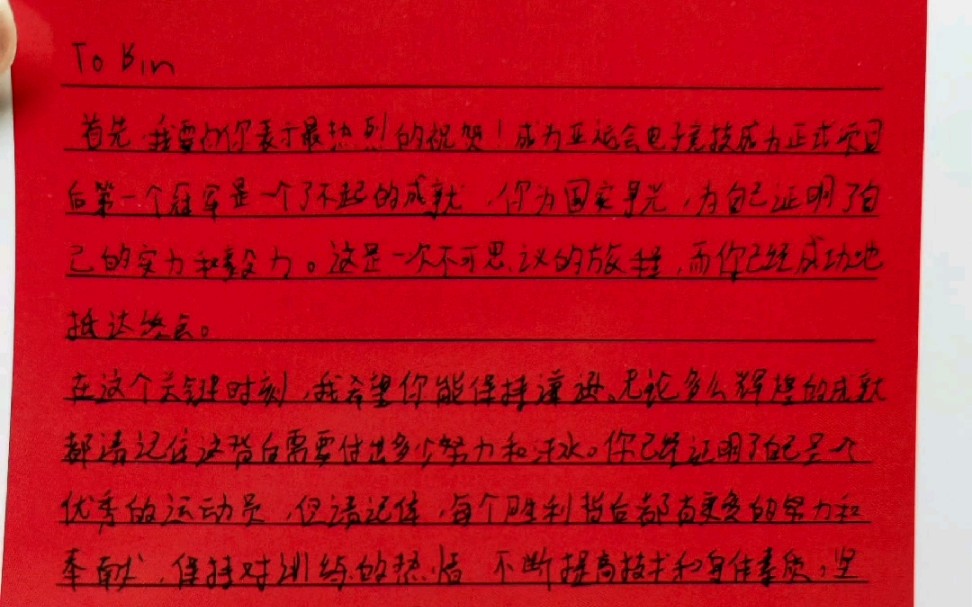 To Bin
首先,我要向你表示最热烈的祝贺!成为亚运会电子竞技成为正式项目
后第一个冠军是一个了不起的成就,你为国家争光,为自己证明了自
己的实力和毅力。这是一次不可思议的旅程,而你已经成功地
抵达终点。
在这个关键时刻,我希望你能保持谦逊,无论多么辉煌的成就
都请记住这背后需要付出多少努力和汗水。你已经证明了自己是一个
优秀的运动员,但请记住,每个胜利背后都有更多的努力和
奉献,保持对训练的热情,不断提高技术和身体素质,坚